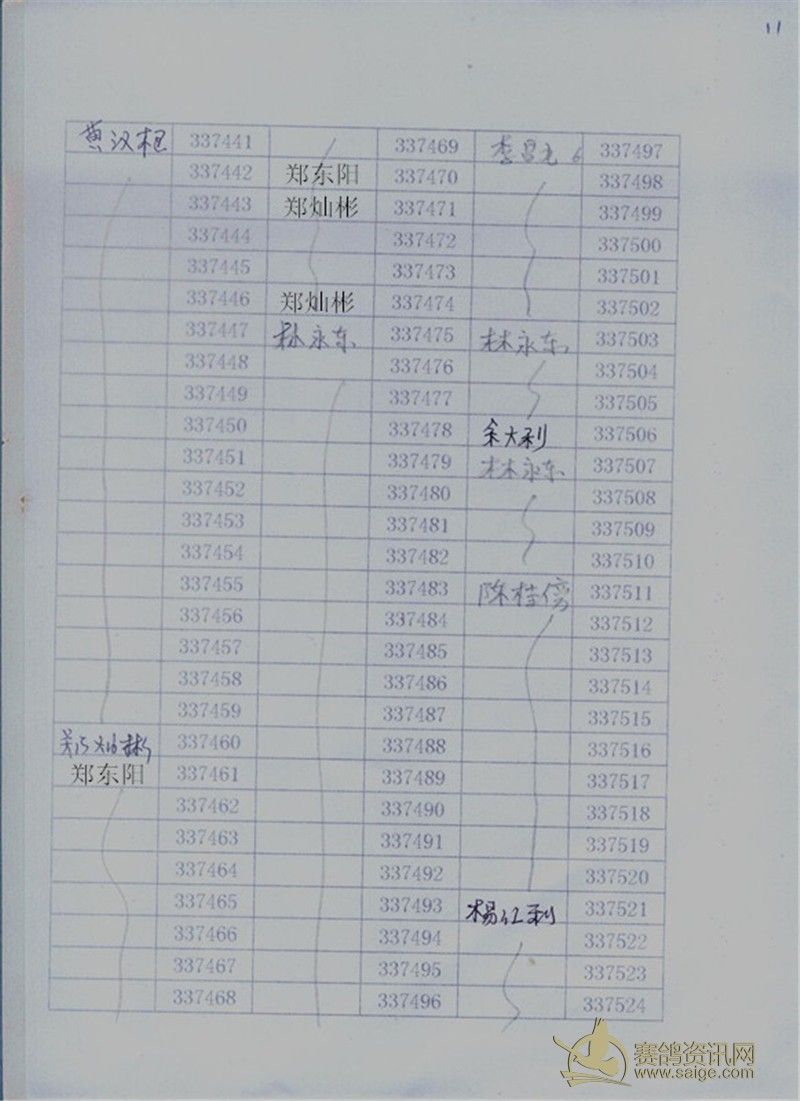 11
黄汉杞 337441 337469 李昌光 337497
337442 郑东阳 337470 337498
337443 郑灿彬 337471 337499
337444 337472 337500
337445 337473 337501
337446 郑灿彬 337474 337502
337447 林永东 337475 林永东 337503
337448 337476 337504
337449 337477 337505
337450 337478 余大利 337506
337451 337479 林永东 337507
337452 337480 337508
337453 337481 337509
337454 337482 337510
337455 337483 陈桂傍 337511
337456 337484 337512
337457 337485 337513
337458 337486 337514
337459 337487 337515
郑灿彬 337460 337488 337516
郑东阳 337461 337489 337517
337462 337490 337518
337463 337491 337519
337464 337492 337520
337465 337493 杨红利 337521
337466 337494 337522
337467 337495 337523
337468 337496 337524
赛鸽资讯网
www.saige.com